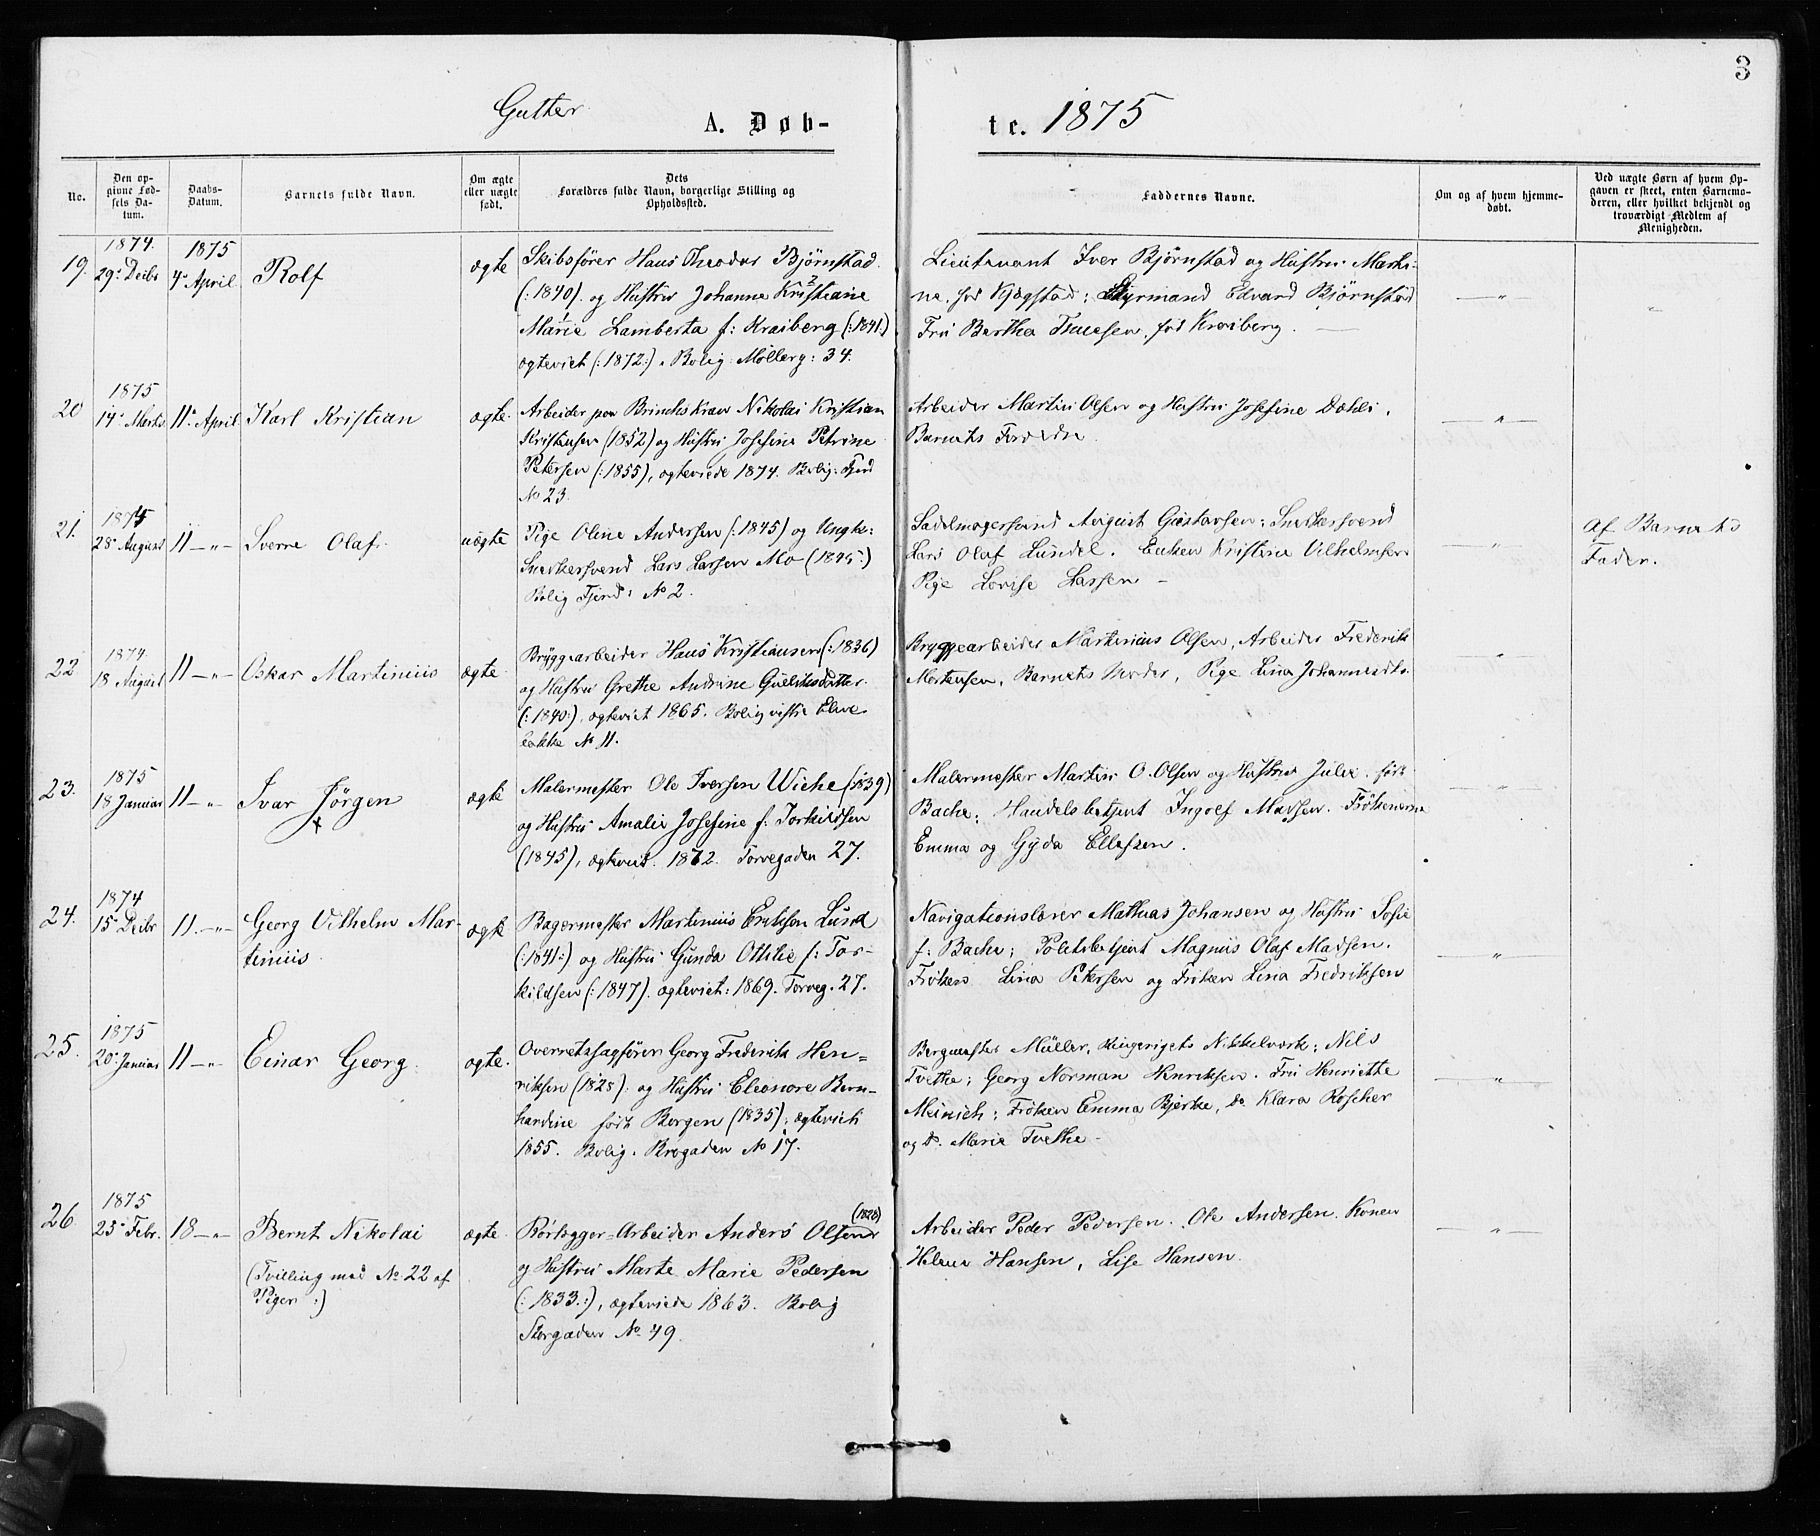 3
Gutter
A. Døb-
te. 1875
No.
Den op-
givne Fød-
sels Da-
tum.
Daabs-
Datum.
Barnets fulde Navn.
Om ægte
eller uægte
født.
Dets
Forældres fulde Navn, borgerlige Stilling og
Opholdssted.
Faddernes Navne.
Om og af hvem hjemme-
døbt.
Ved uægte Børn af hvem Op-
gaven er skeet, enten Barnemo-
deren, eller hvilket bekjendt og
troværdigt Medlem af
Menigheden.
19.
1874.
29. Decbr
1875
4. April
Rolf
ægte
Skibsfører Hans Theodor Bjørnstad
(:1840). og Hustru Johanne Kristiane
Marie Lamberta f: Kraiberg (:1841:)
ægteviet (:1872:). Bolig: Møllerg: 34.
Lieutenant Iver Bjørnstad og Hustru Marti-
ne, fød Kjøgstad; Styrmand Edvard Bjørnstad
Fru Bertha Thuesen, fød Kraiberg.
— " —
"
20
1875
14. Marts
11. April
Karl Kristian
ægte.
Arbeider paa Brinchs Kran Nikolai Kristian
Kristensen (1852) og Hustru Josefine Petrine
Petersen (:1855), ægteviede 1874. Bolig: Fjerd
No 23.
Arbeider Martin Olsen og Hustru Josefine Dahli.
Barnets Forældre.
— " —
21.
1875
28. August
11 — " —
Sverre Olaf.
uægte
Pige Oline Andersen (:1845) og Ungk:
Snedkersvend Lars Larsen Mo (1845:)
Bolig Fjerd: No 2.
Sadelmagersvend August Gustavsen; Snedkersvend
Lars Olaf Lundel. Enken Kristine Vilhelmsen
Pige Lovise Larsen —
— " —
Af Barnets
Fader.
22
1874.
18 August
11 — " —
Oskar Martinius
ægte.
Bryggearbeider Hans Kristiansen (:1836)
og Hustru Grethe Andrine Gulliksdatter
(:1840:), ægteviet 1865. Bolig vestre Elve
bakke No 11.
Bryggearbeider Martinius Olsen, Arbeider Frederik
Mortensen, Barnets Moder, Pige Lina Johannesdtr.
"
23.
1875
18 Januar
11 — "
Ivar Jörgen
x
ægte
Malermester Ole Iversen Wiche (1839)
og Hustru Amalie Josefine f. Torkildsen
(1845), ægteviet. 1872. Torvegaden 27.
Malermester Martin O. Olsen og Hustru Julie født
Bache; Handelsbetjent Ingolf Madsen. Frökenerne
Emma og Gyda Ellefsen.
— " —
24.
1874
15. Decbr
11. — " —
Georg Vilhelm Mar-
tinius.
ægte
Bagermester Martinius Eriksen Lund
(:1841:) og Hustru Gunda Ottilie f: Tor-
kildsen (:1847). ægteviet: 1869. Torveg. 27.
Navigationslærer Mathias Johansen og Hustru Sofie
f. Bache; Politibetjent Magnus Olaf Madsen.
Frøken Lina Petersen og Frøken Lina Fredriksen
— " —
25.
1875
20. Januar
11 — " —
Einar Georg.
ægte.
Overretssagfører Georg Frederik Hen-
riksen (1825). og Hustru Eleonore Bern-
hardine født Borgen (1835); ægteviet
1855. Bolig. Brogaden No 17.
Bergmester Müller, Ringeriges Nikkelværk; Nils
Tvethe; Georg Norman Henriksen. Fru Henriette
Meinich; Frøken Emma Bjerke, do Klara Roscher
og do. Marie Tvethe —
— " —
26
1875
23. Febr.
18 — " —
Bernt Nikolai
(Tvilling med No 22 af
Piger :)
ægte.
(1828)
Rørlægger-Arbeider Anders Olsen
og Hustru Marte Marie Pedersen
(:1833:), ægteviede 1863. Bolig
Storgaden No 49.
Arbeider Peder Pedersen. Ole Andersen. Konen
Helene Hansen, Lise Hansen.
— " —